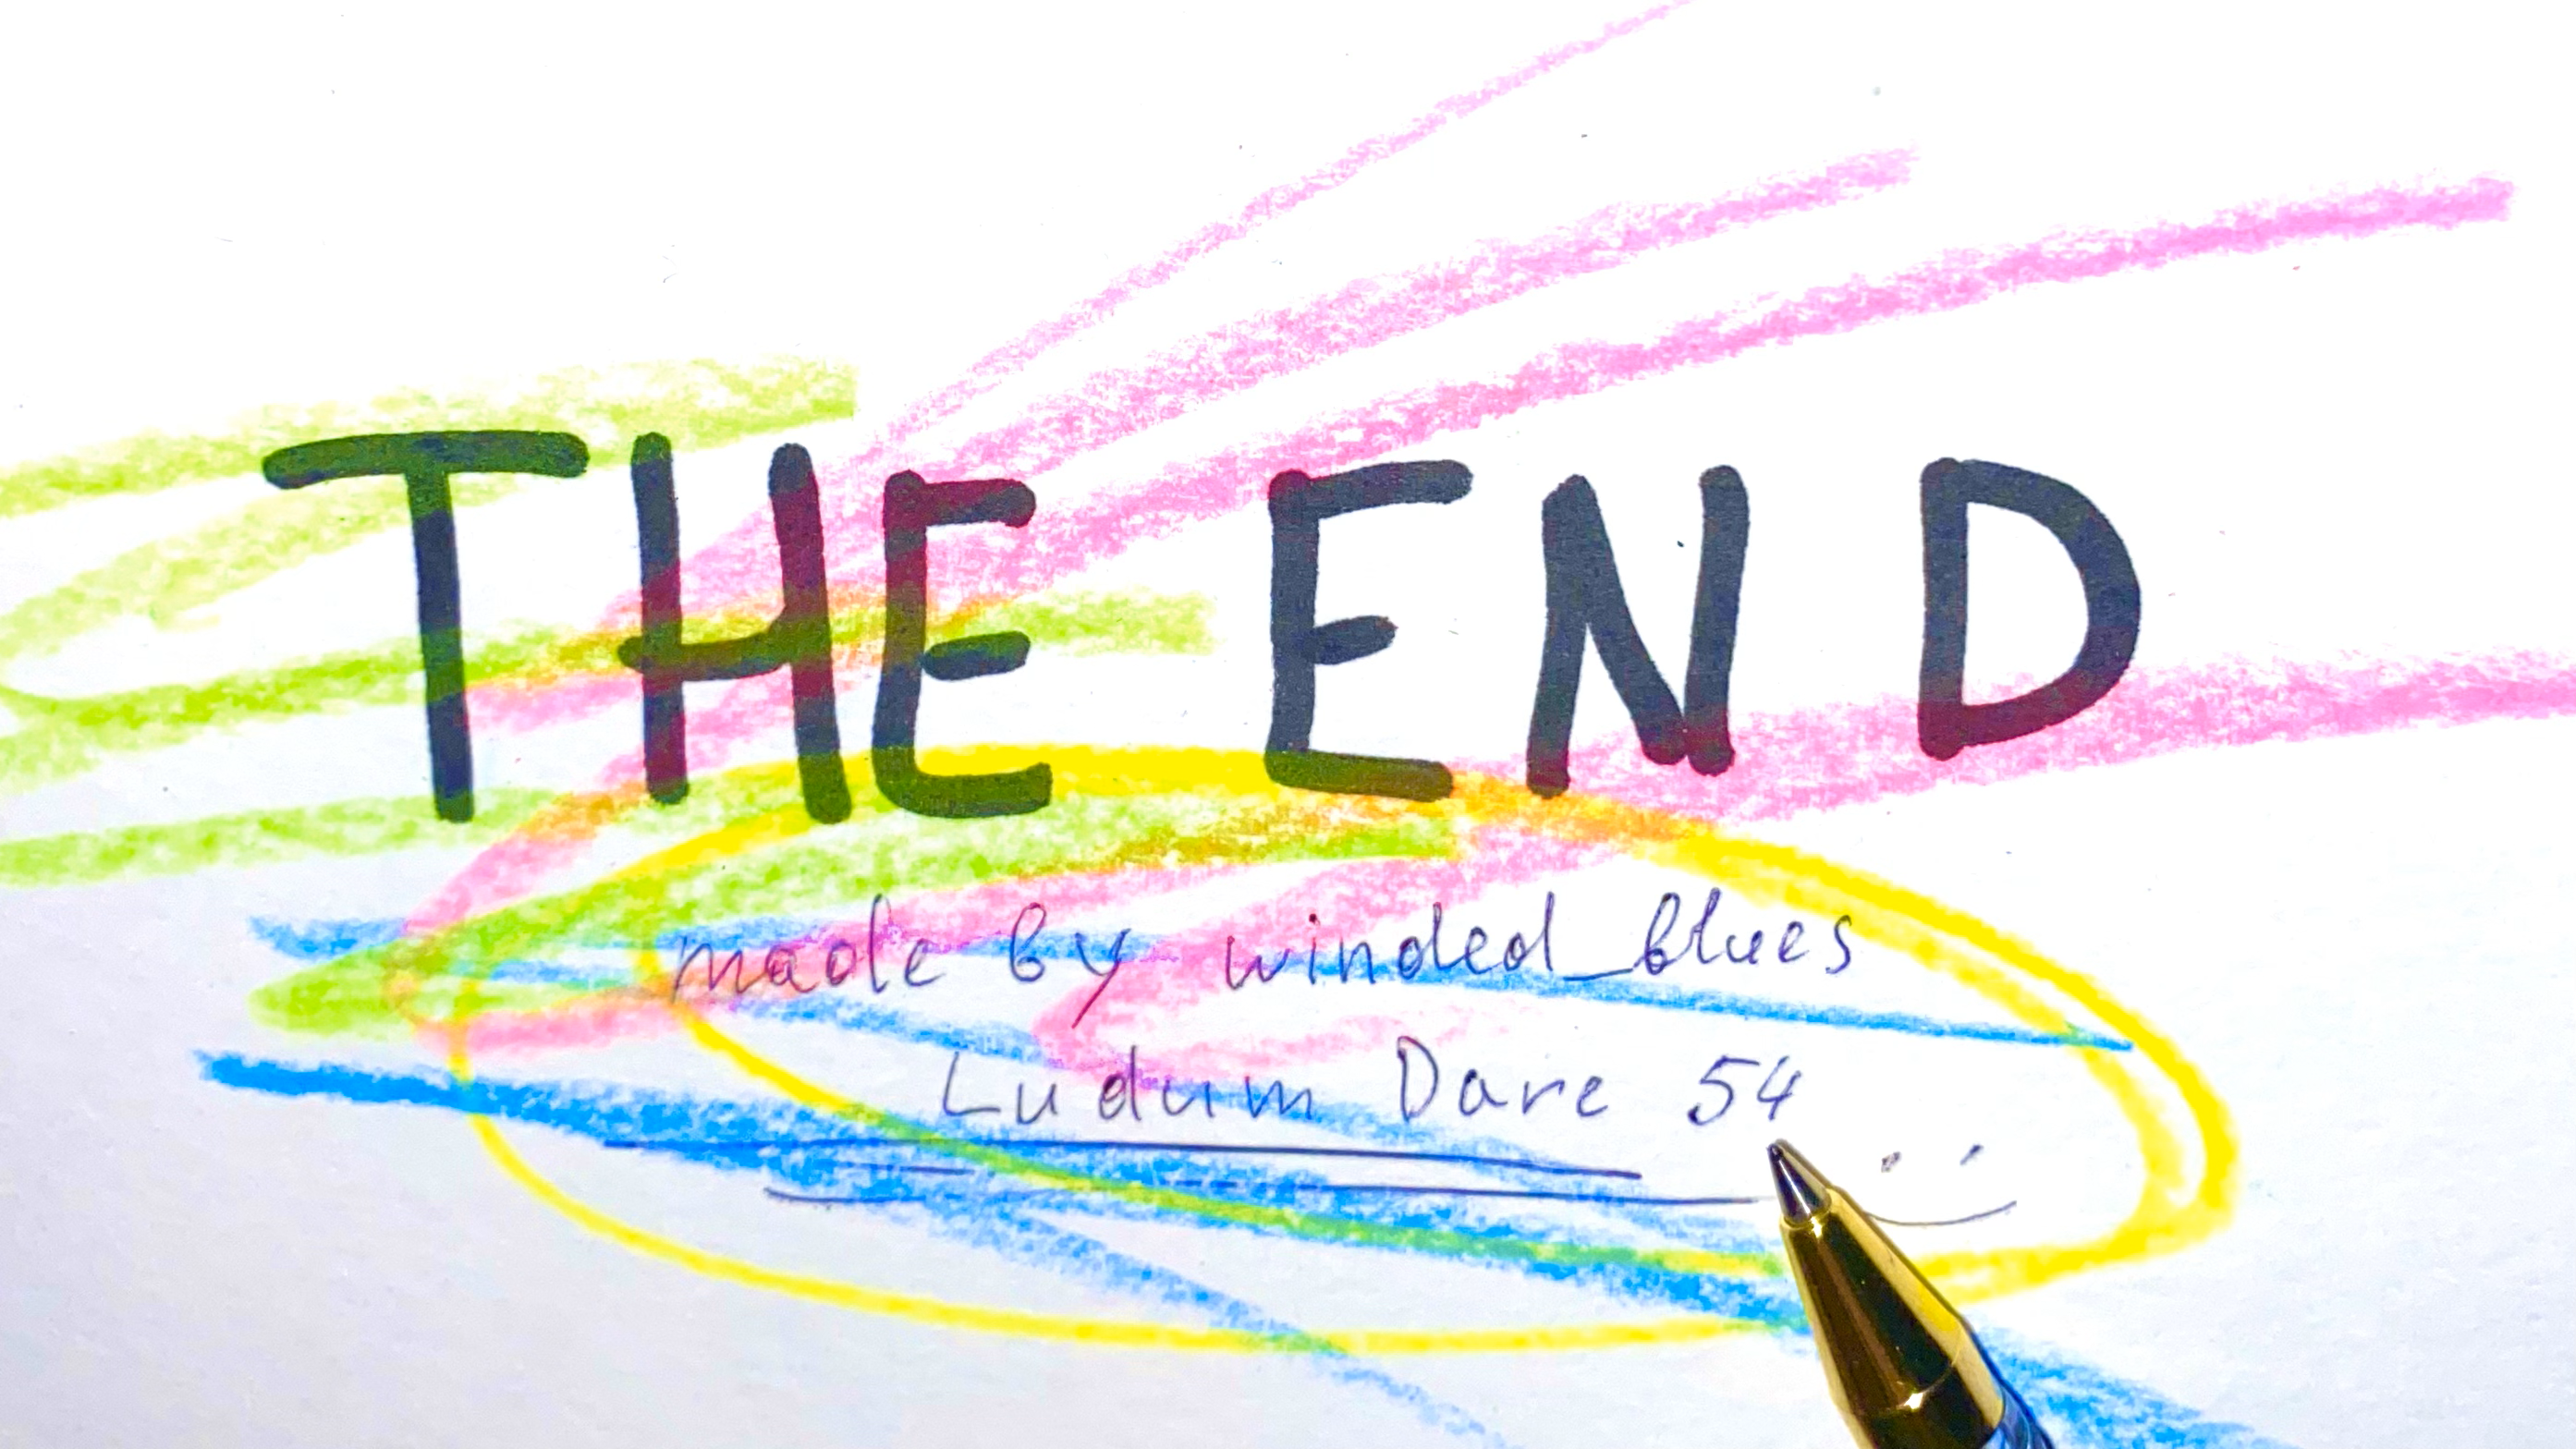 THE END
made by winded_blues
Ludum Dare 54